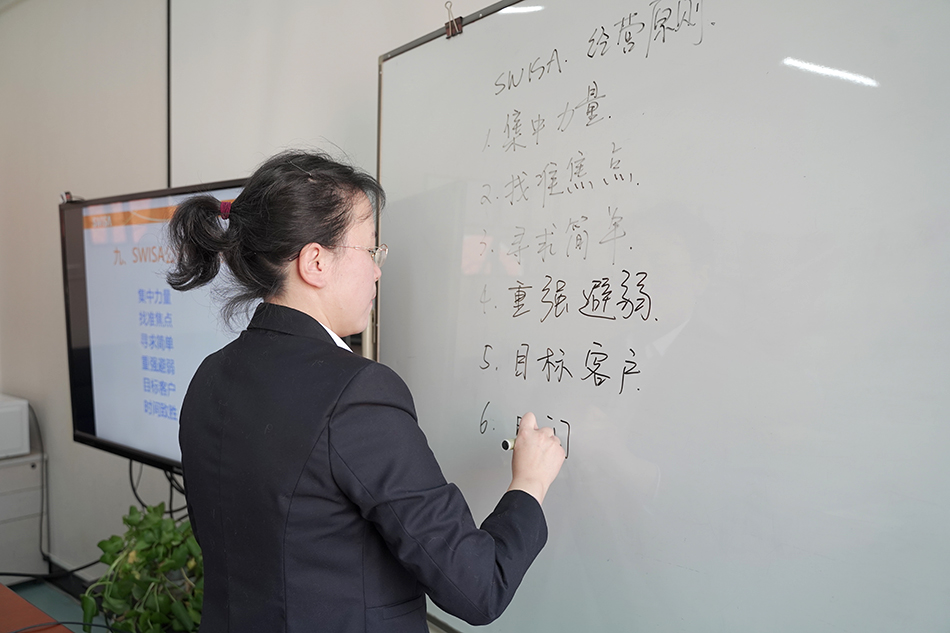 九、SWISA公
集中力量
找准焦点
寻求简单
重强避弱
目标客户
时间致胜
SWISA. 经营原则.
1. 集中力量.
2. 找准焦点.
3. 寻求简单.
4. 重强避弱.
5. 目标客户.
6.